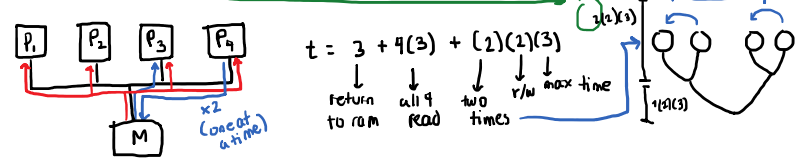 P1 P2 P3 P4
M
x2
(one at
a time)
t = 3 + 4(3) + (2)(2)(3)
return
to ram
all 4
read
two
times
r/w
max time
2(2)(3)